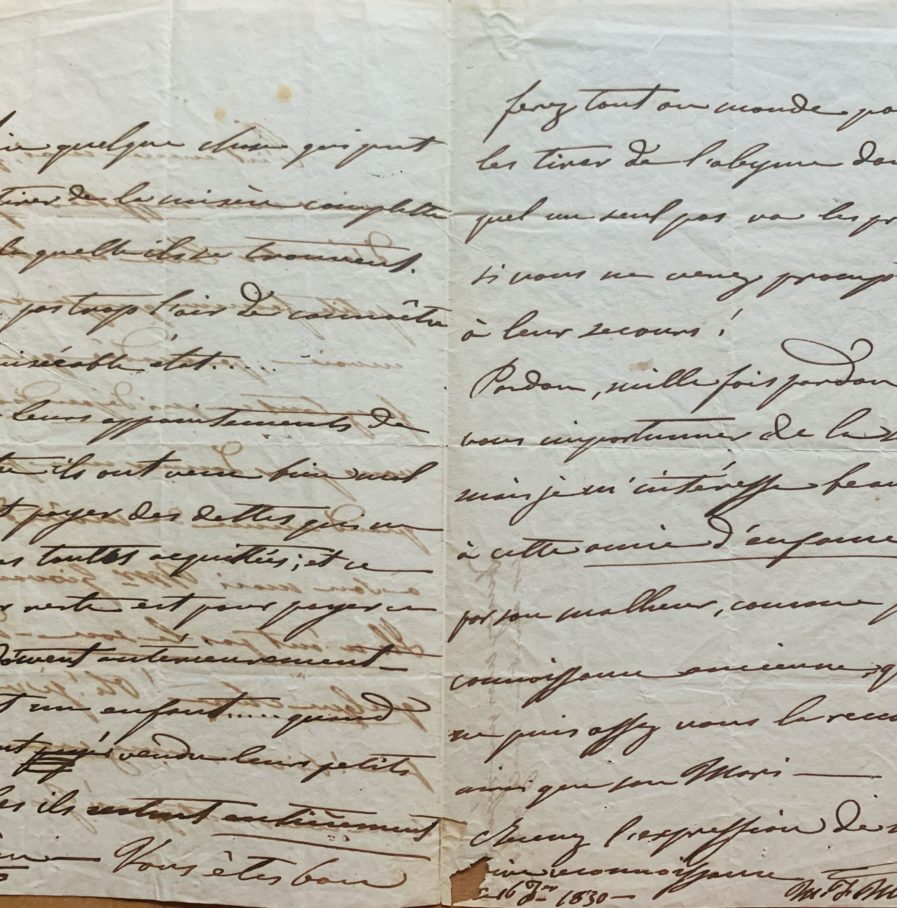 quelque chose qui put
tirer de la misère complette
quelle ils se trouvent.
pas trop l'air de connoître
misérable état....
leurs appointements de
ils ont venu bien mal
payer des dettes qui ne
toutes acquitées; et ce
reste est pour payer ce
doivent antérieurement
un enfant..... quand
vendu leurs petits
ils restent entièrement
Vous êtes bon
ferez tout au monde po
les tirer de l'abyme da
quel un seul pas va les pr
si vous ne venez prompt
à leur secours!
Pardon, mille fois pardon
vous importunner de la
mais je m'intéresse beau
à cette amie d'enfance
par son malheur, comme
connoissance ancienne, q
ne puis assez vous la reco
ainsi que son Mari —
Recevez l'expression de
vive reconnoissance
16 1830 —